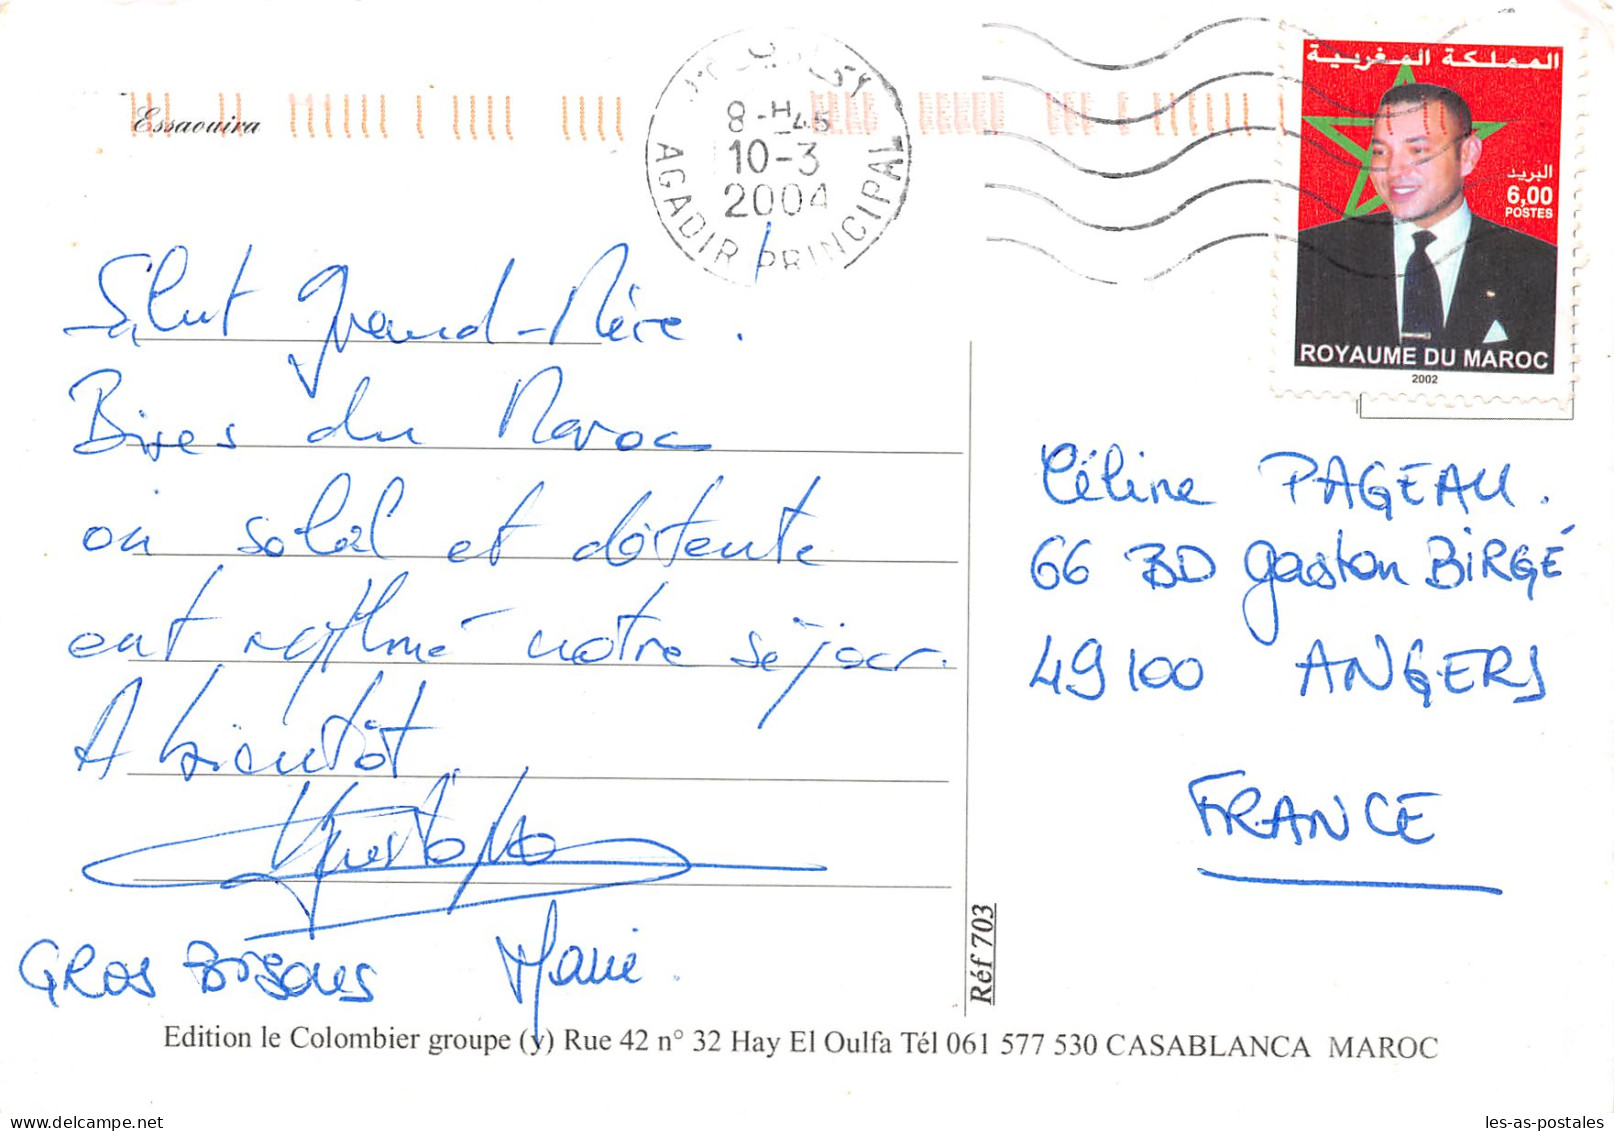 Essaouira
8-H45
10-3
2004
AGADIR PRINCIPAL
المملكة المغربية
البريد
6,00
POSTES
ROYAUME DU MAROC
2002
Salut Grand-Mère.
Bises du Maroc
où soleil et détente
ont rythmé notre séjour.
A bientôt
GROS BISOUS Marie.
Céline PAGEAU.
66 BD Gaston BIRGÉ
49100 ANGERS
FRANCE
Réf 703
Edition le Colombier groupe (y) Rue 42 n° 32 Hay El Oulfa Tél 061 577 530 CASABLANCA MAROC
les-as-postales